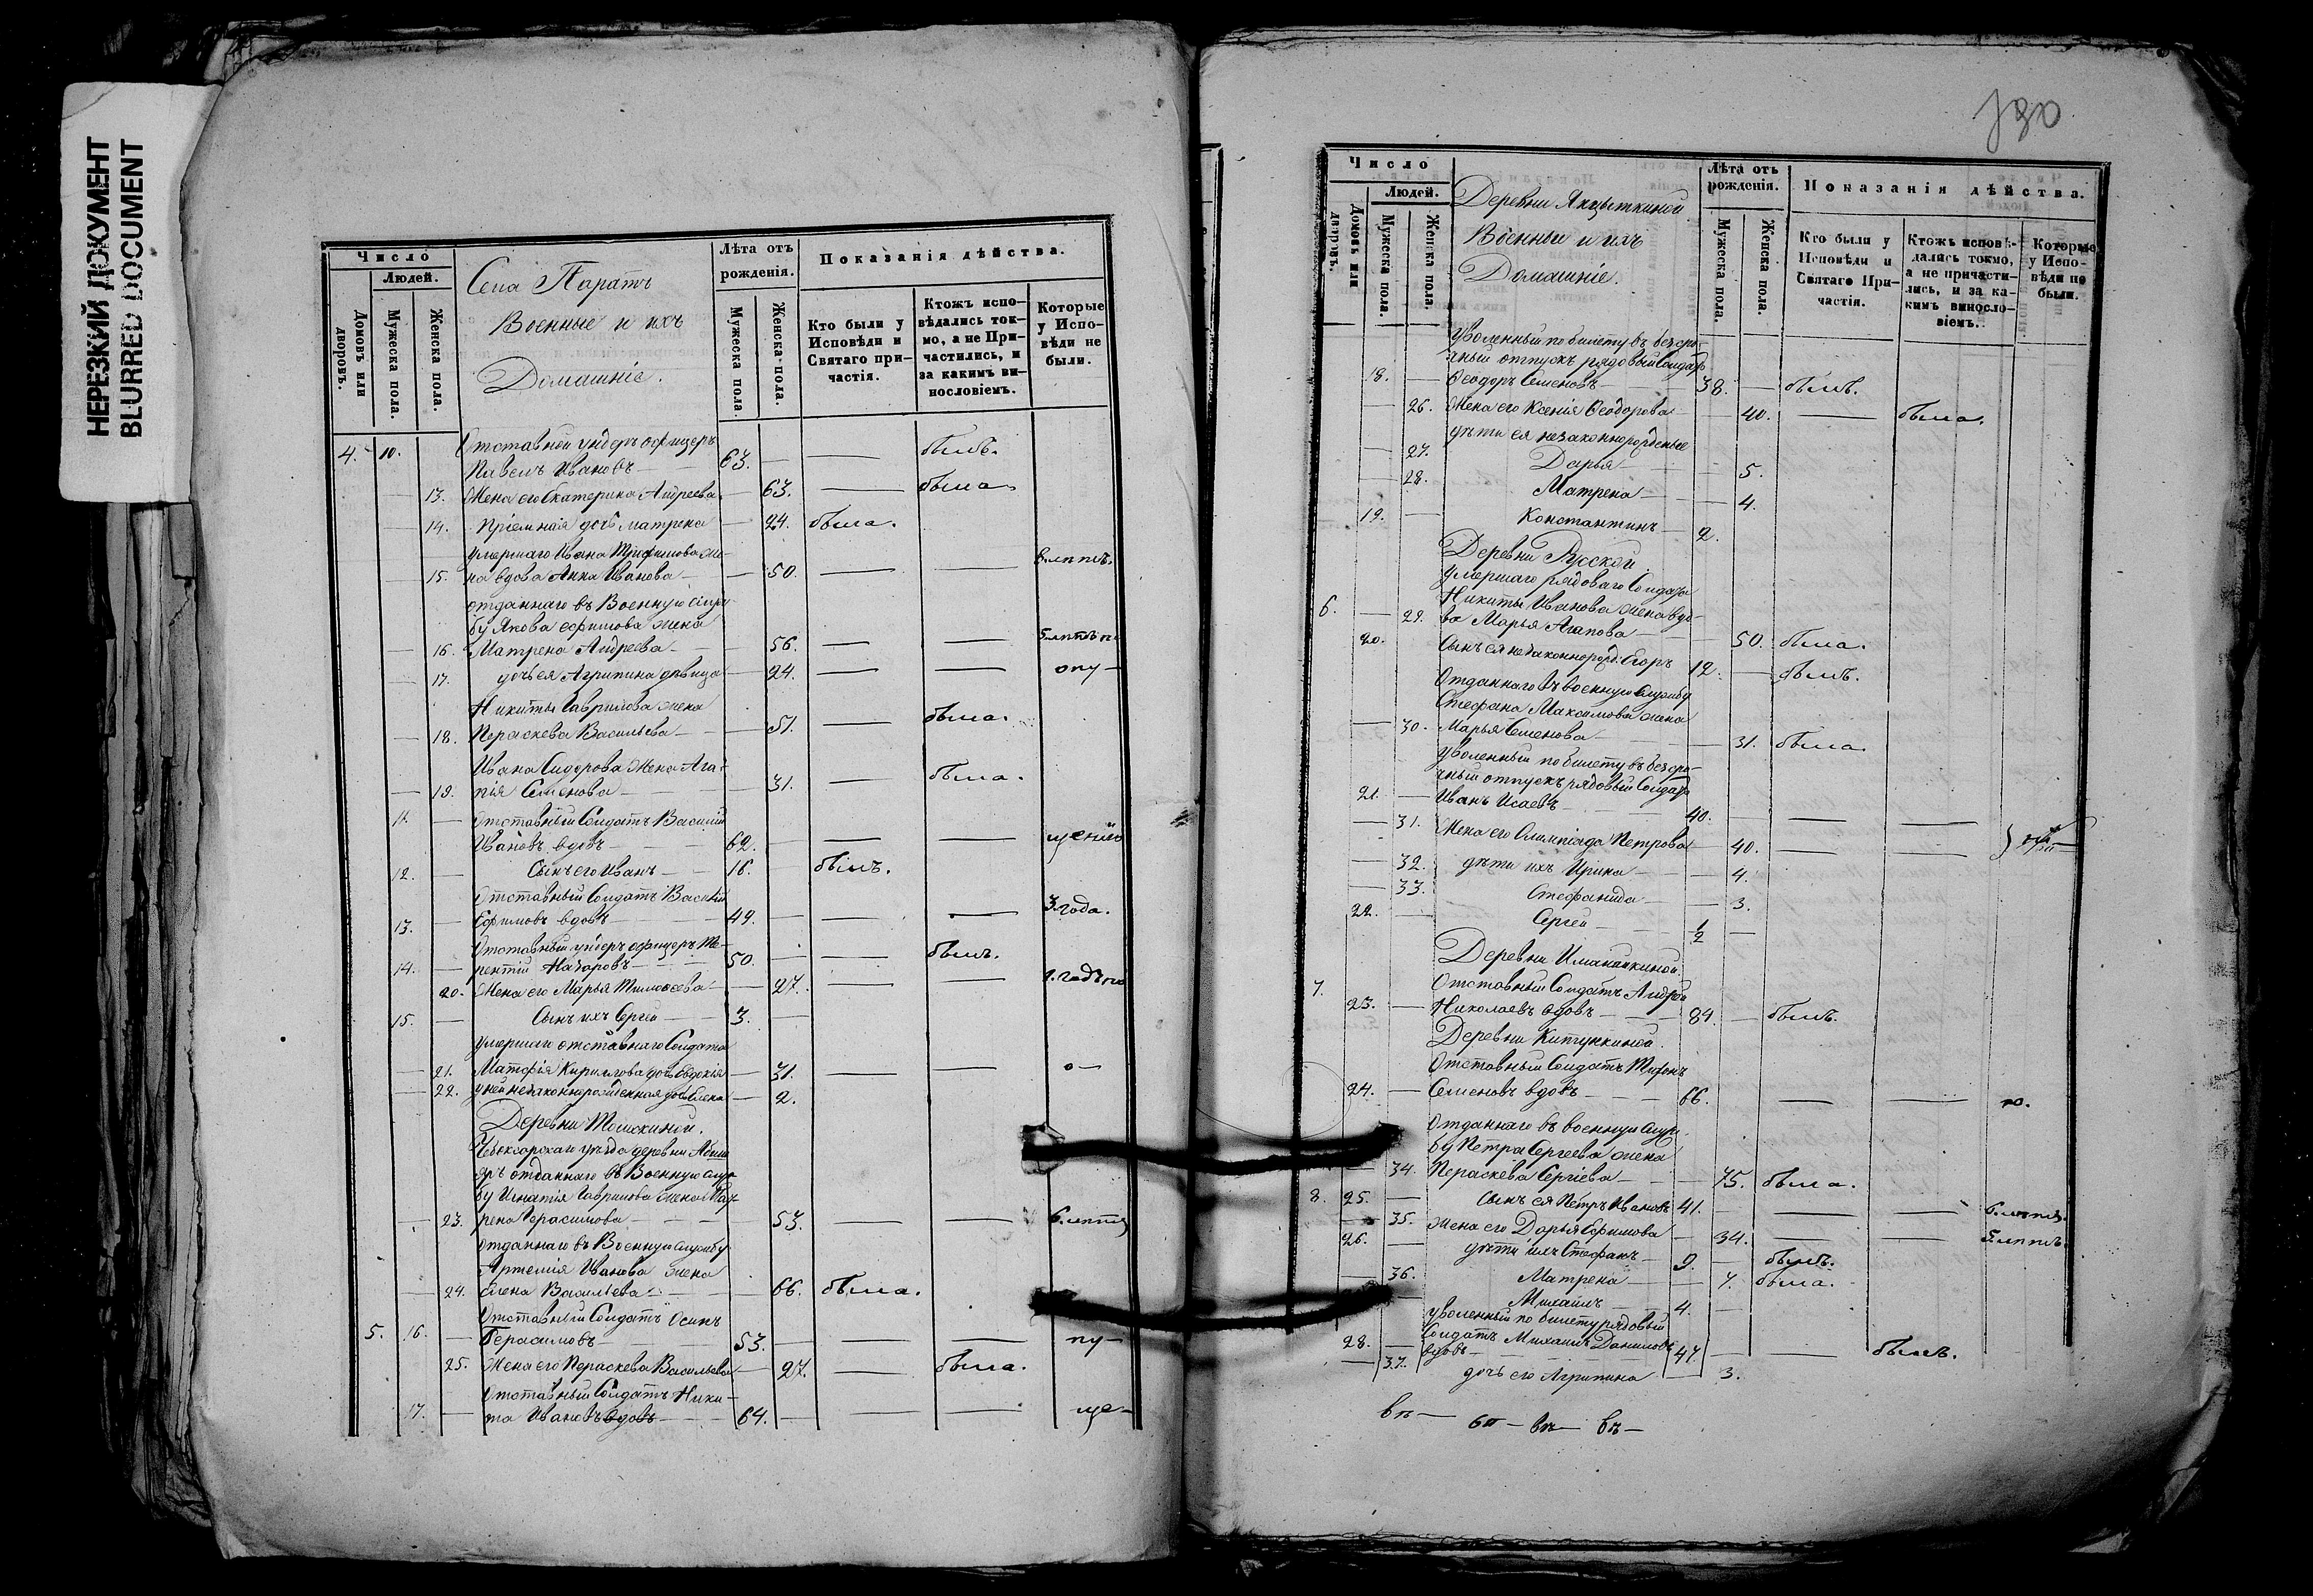 НЕРЕЗКИЙ ДОКУМЕНТ
BLURRED DOCUMENT
Число
Людей.
Домовъ или дворовъ.
Мужеска пола.
Женска пола.
Села Паратъ
Военные и ихъ
Домашніе.
Лѣта отъ рожденія.
Мужеска пола.
Женска пола.
Показанія дѣйства.
Кто были у Исповѣди и Святаго причастія.
Ктожъ исповѣдались токмо, а не Причастились, и за какимъ винословіемъ.
Которые у Исповѣди не были.
Отставной ундеръ офицеръ
4. 10. Павелъ Ивановъ 63. былъ.
13. Жена его Екатерина Андреева 63. была
14. Пріемная дочь Матрена 24. была.
умершаго Ивана Трофимова же-
15. на вдова Анна Иванова 50. 6. лѣтъ.
отданнаго въ Военную служ-
бу Якова Ефимова жена
16. Матрена Андреева 56. 5 лѣтъ по
17. дочь ея Агрипина дѣвица 24. опу-
Никиты Гаврилова жена
18. Пераскева Васильева 51. была.
Ивана Сидорова жена Ага-
19. пія Семенова 31. была.
11. Отставный Солдатъ Василій
Ивановъ вдовъ 62. щенію
12. Сынъ его Иванъ 16. былъ.
Отставный Солдатъ Василій
13. Ефимовъ вдовъ 49. 3. года.
Отставный ундеръ офицеръ Те-
14. рентій Назаровъ 50. былъ.
20. Жена его Марья Тимофеева 27. 1. годъ по
15. Сынъ ихъ Сергей 3.
умершаго отставнаго Солдата
21. Матфія Кирилова дочь Евдокія 31. о-
22. у ней незаконнорожденная дочь Елена 2.
Деревни Томскиной.
Чебоксарскаго уѣзда деревни
отданнаго въ Военную служ
бу Игнатія Гаврилова жена Мат
23. рена Герасимова 53. 6. лѣтъ
отданнаго въ Военную службу
Артемія Иванова жена
24. Елена Васильева 66. была.
Отставный Солдатъ Осипъ
5. 16. Герасимовъ 53. пу-
25. Жена его Пераскева Васильева 27. была.
Отставный Солдатъ Ники-
17. та Ивановъ вдовъ 64. ще-
Число
Людей.
Домовъ или дворовъ.
Мужеска пола.
Женска пола.
Деревни
Военные и ихъ
Домашніе.
Лѣта отъ рожденія.
Мужеска пола.
Женска пола.
Показанія дѣйства.
Кто были у Исповѣди и Святаго Причастія.
Ктожъ исповѣдались токмо, а не причастились, и за какимъ винословіемъ.
Которые у Исповѣди не были.
Уволенный по билету въ безсро-
чный отпускъ рядовый Солдатъ
18. Ѳеодоръ Семеновъ 38. былъ.
26. Жена его Ксенія Ѳеодорова 40. была.
дѣти ея незаконнорожденые
27. Дарья 5.
28. Матрена 4.
19. Константинъ 2.
Деревни Русской.
умершаго рядоваго Солдата
6. Никиты Иванова жена вдо-
29. ва Марья Агапова 50. была.
20. Сынъ ея незаконнорожд. Егоръ 12. былъ.
Отданнаго въ военную службу
Стефана Максимова жена
30. Марья Семенова 31. была.
Уволенный по билету въ безсро-
чный отпускъ рядовый Солдатъ
21. Иванъ Исаевъ 40.
31. Жена его Олимпіада Петрова 40.
32. дѣти ихъ Ирина 4.
33. Стефанида 3.
22. Сергей 1/2
Деревни
7. Отставный Солдатъ Андрей
23. Николаевъ вдовъ 84. былъ.
Деревни Китункиной.
Отставный Солдатъ
24. Семеновъ вдовъ 66. ю.
Отданнаго въ военную служ-
бу Петра Сергеева жена
34. Пераскева Сергіева 75. была.
8. 25. Сынъ ея Петръ Ивановъ 41. 6. лѣтъ.
35. Жена его Дарья Ефимова 34. 5. лѣтъ.
26. дѣти ихъ Стефанъ 9. былъ.
36. Матрена 7. была.
Михаилъ 4.
Уволенный по билету рядовый
28. Солдатъ Михаилъ Даниловъ
вдовъ 47. былъ.
37. дочь его Агрипина 3.